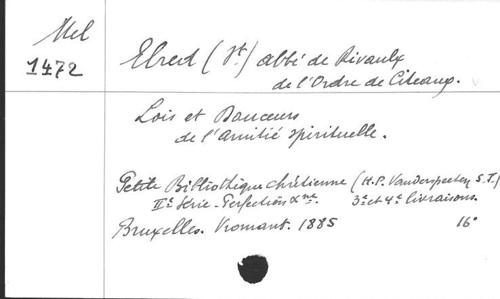 Mel
1472
Elred (St) abbé de Rivaulx
de l'Ordre de Citeaux.
Lois et Douceurs
de l'amitié spirituelle.
Petite Bibliothèque chrétienne (H.P. Vanderspeeten S.J.)
IIe Série - Perfection Xne. 3e et 4e livraisons.
Bruxelles. Vromant. 1885 16°